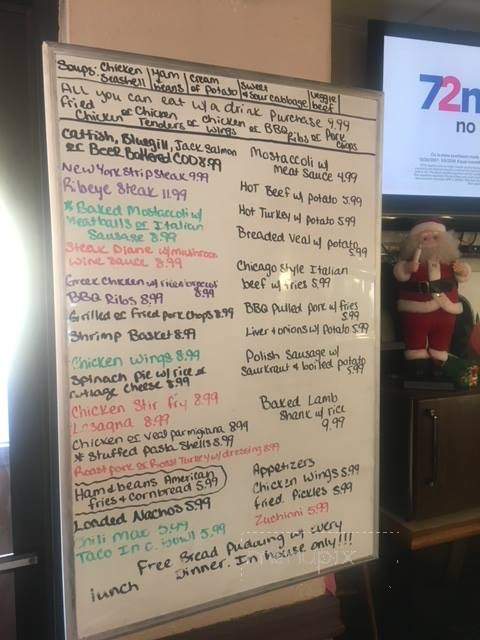 Soups: Chicken Seashell | Ham beans | Cream of Potato | Sweet & Sour cabbage | Veggie beef
All you can eat w/a drink Purchase 9.99
Fried Chicken or Chicken Tenders or Chicken Wings or BBQ Ribs or Pork Chops
Catfish, Bluegill, Jack Salmon
or Beer Battered COD 8.99
New York Strip Steak 9.99
Ribeye Steak 11.99
* Baked Mostaccoli w/
Meatballs or Italian
Sausage 8.99
Steak Diane w/mushroom
Wine Sauce 8.99
Greek Chicken w/ rice & broccoli
8.99
BBQ Ribs 8.99
Grilled or Fried Pork Chops 8.99
Shrimp Basket 8.99
Chicken Wings 8.99
Spinach Pie w/ rice &
Cottage Cheese 8.99
Chicken Stir fry 8.99
Lasagna 8.99
Chicken or Veal parmigiana 8.99
* Stuffed Pasta Shells 8.99
Roast pork or Roast Turkey w/ dressing 8.99
Ham & beans American
fries & Cornbread 5.99
Loaded Nachos 5.99
Chili Mac 5.99
Taco In a Bowl 5.99
Mostaccoli w/
Meat Sauce 4.99
Hot Beef w/ potato 5.99
Hot Turkey w/ potato 5.99
Breaded Veal w/ potato
5.99
Chicago Style Italian
beef w/ fries 5.99
BBQ Pulled pork w/ fries
5.99
Liver & onions w/ Potato 5.99
Polish Sausage w/
Saurkraut & boiled potato
5.99
Baked Lamb
Shank w/ rice
9.99
Appetizers
Chicken Wings 5.99
fried Pickles 5.99
Zuchinni 5.99
Free Bread Pudding w/ Every
lunch Dinner. In house only!!!
72
no
menupix